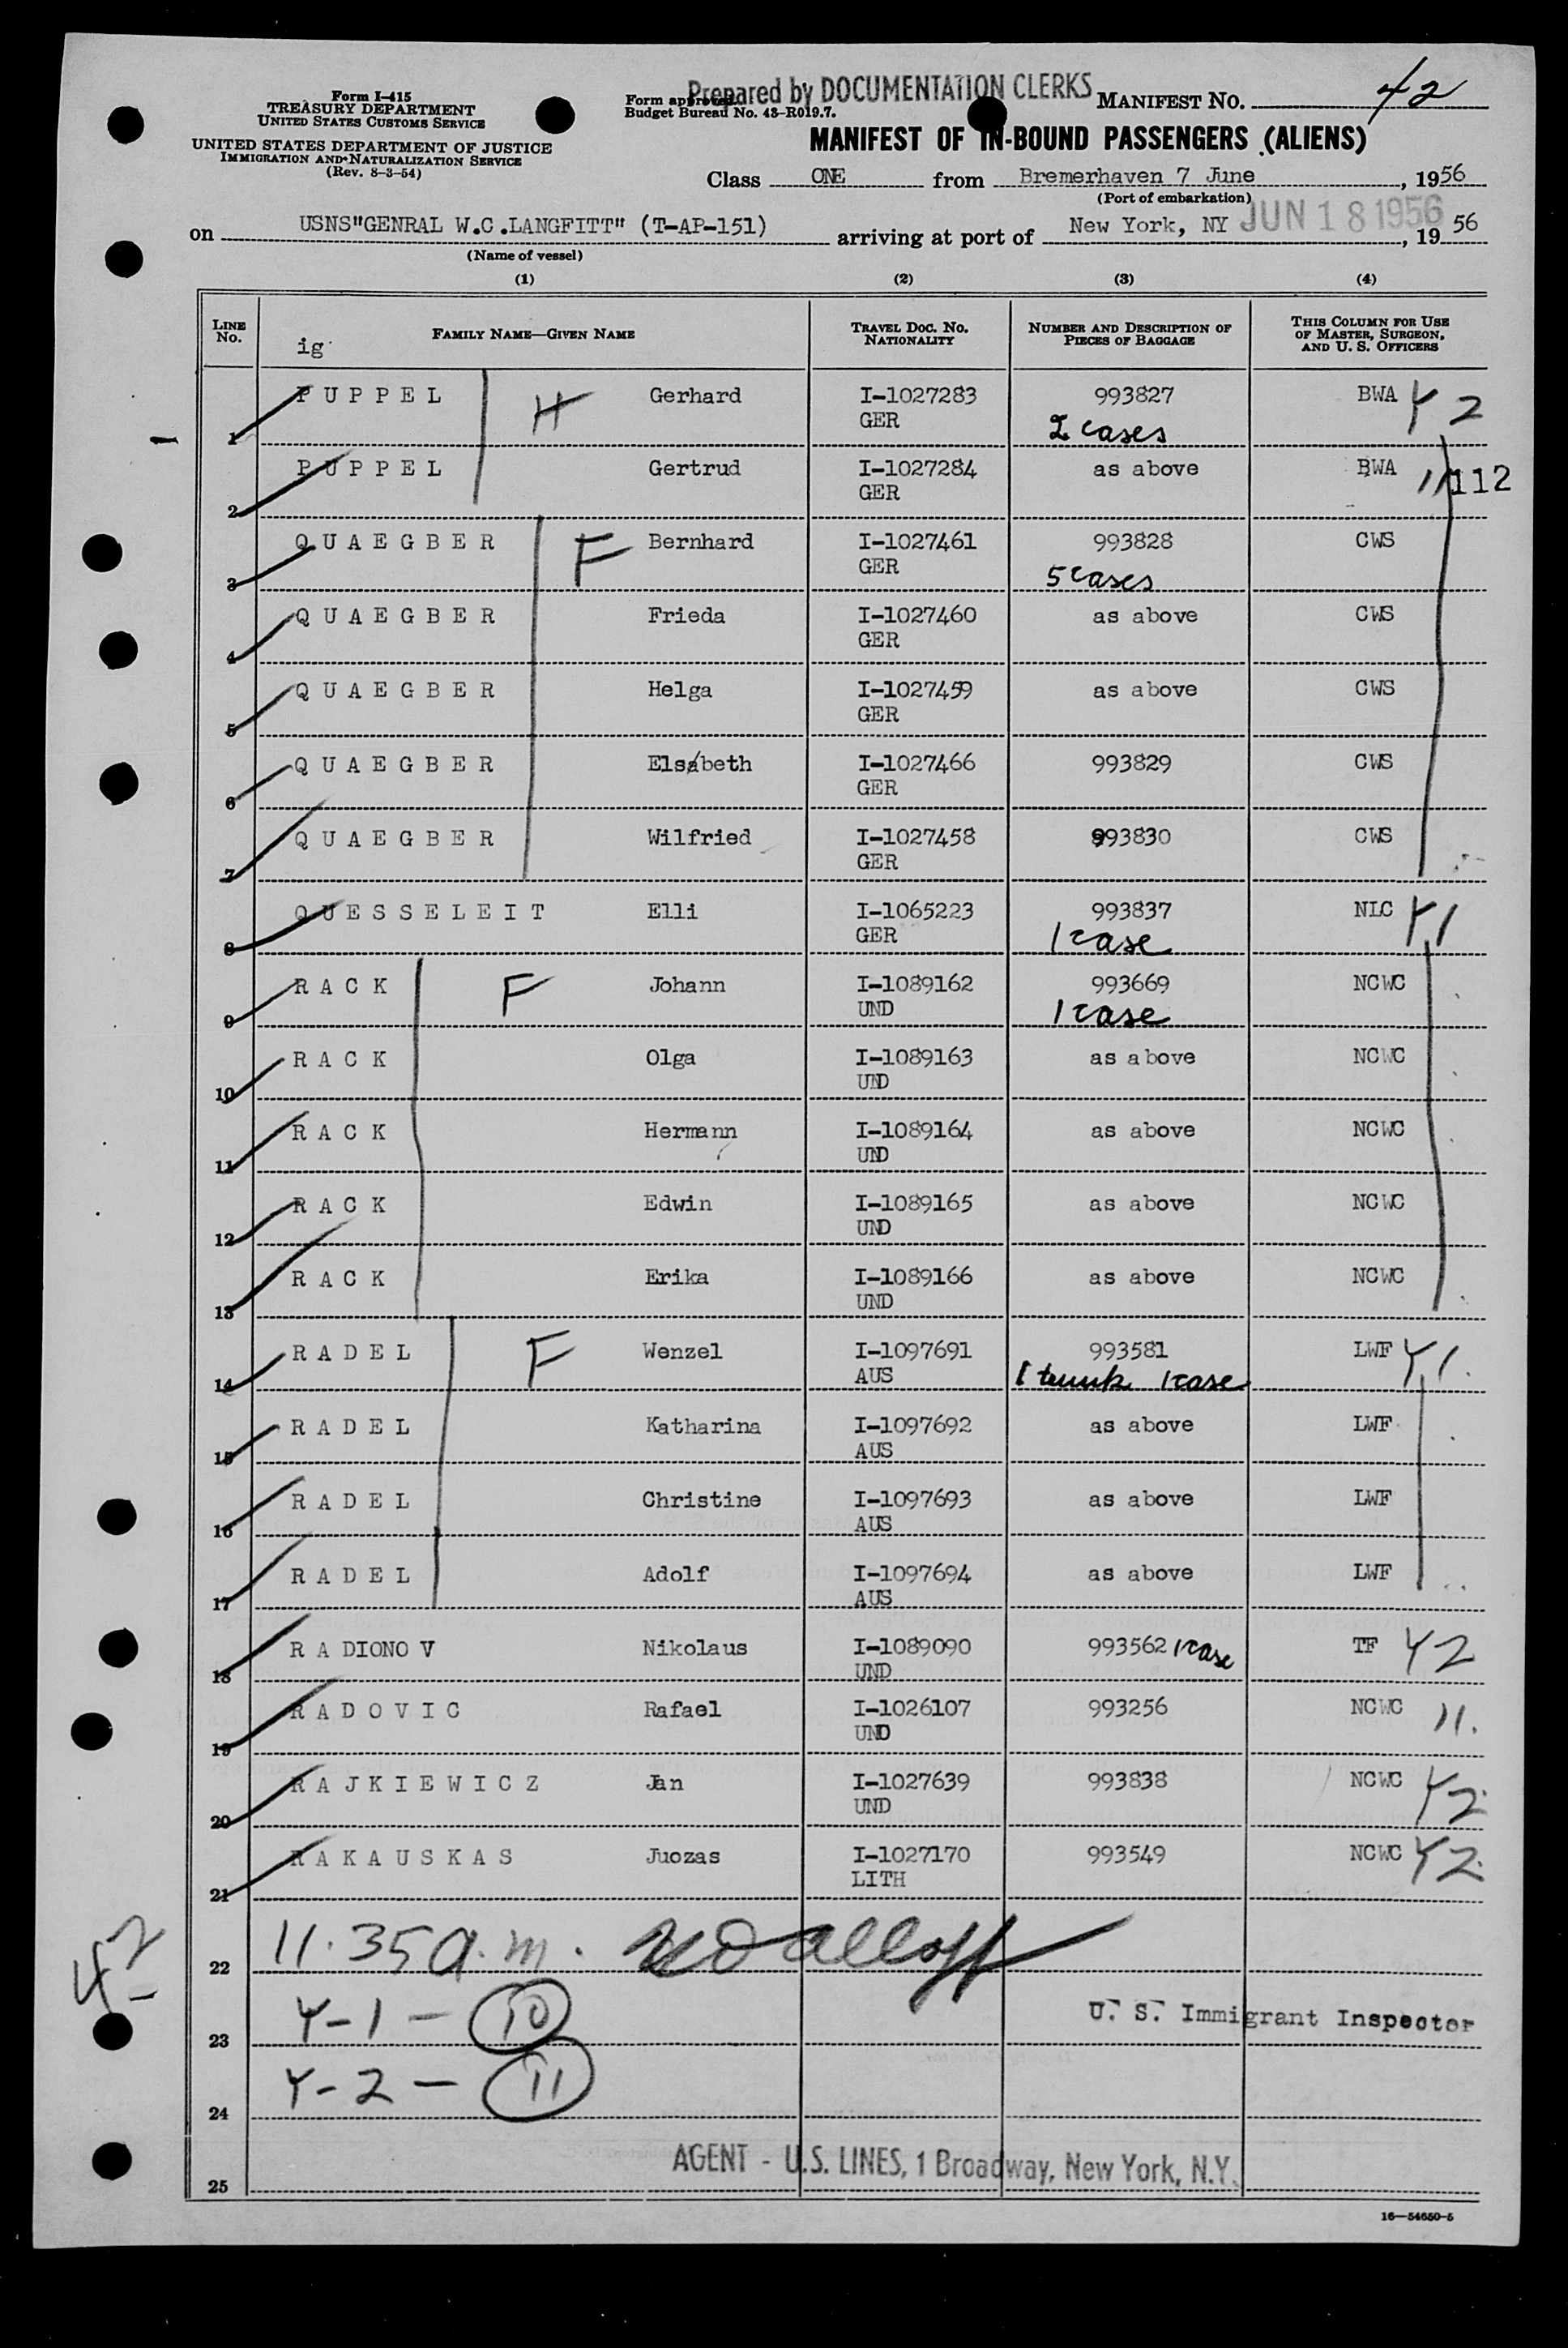 Form I-415
TREASURY DEPARTMENT
UNITED STATES CUSTOMS SERVICE
UNITED STATES DEPARTMENT OF JUSTICE
IMMIGRATION AND NATURALIZATION SERVICE
(Rev. 8-3-54)
Prepared by DOCUMENTATION CLERKS
Form approved.
Budget Bureau No. 43-R019.7.
MANIFEST NO. 42
MANIFEST OF IN-BOUND PASSENGERS (ALIENS)
Class ONE from Bremerhaven 7 June, 1956
(Port of embarkation)
on USNS"GENRAL W.C.LANGFITT" (T-AP-151) arriving at port of New York, NY JUN 18 1956, 19 56
(Name of vessel)
(1) (2) (3) (4)
LINE No. FAMILY NAME—GIVEN NAME TRAVEL DOC. NO. NATIONALITY NUMBER AND DESCRIPTION OF PIECES OF BAGGAGE THIS COLUMN FOR USE OF MASTER, SURGEON, AND U. S. OFFICERS
ig
1 PUPPEL H Gerhard I-1027283 993827 BWA Y2
GER 2 cases
2 PUPPEL Gertrud I-1027284 as above BWA 11 112
GER
3 QUAEGBER F Bernhard I-1027461 993828 CWS
GER 5 cases
4 QUAEGBER Frieda I-1027460 as above CWS
GER
5 QUAEGBER Helga I-1027459 as above CWS
GER
6 QUAEGBER Elsabeth I-1027466 993829 CWS
GER
7 QUAEGBER Wilfried I-1027458 993830 CWS
GER
8 QUESSELEIT Elli I-1065223 993837 NLC Y1
GER 1 case
9 RACK F Johann I-1089162 993669 NCWC
UND 1 case
10 RACK Olga I-1089163 as above NCWC
UND
11 RACK Hermann I-1089164 as above NCWC
UND
12 RACK Edwin I-1089165 as above NCWC
UND
13 RACK Erika I-1089166 as above NCWC
UND
14 RADEL F Wenzel I-1097691 993581 LWF Y1.
AUS 1 trunk 1 case
15 RADEL Katharina I-1097692 as above LWF
AUS
16 RADEL Christine I-1097693 as above LWF
AUS
17 RADEL Adolf I-1097694 as above LWF
AUS
18 RADIONOV Nikolaus I-1089090 993562 1 case TF Y2
UND
19 RADOVIC Rafael I-1026107 993256 NCWC 11.
UND
20 RAJKIEWICZ Jan I-1027639 993838 NCWC Y2
UND
21 RAKAUSKAS Juozas I-1027170 993549 NCWC Y2
LITH
22 11.35 a.m.
42
U. S. Immigrant Inspector
23 Y-1 - 10
24 Y-2 - 11
AGENT - U.S. LINES, 1 Broadway, New York, N.Y.
25
16—54650-5